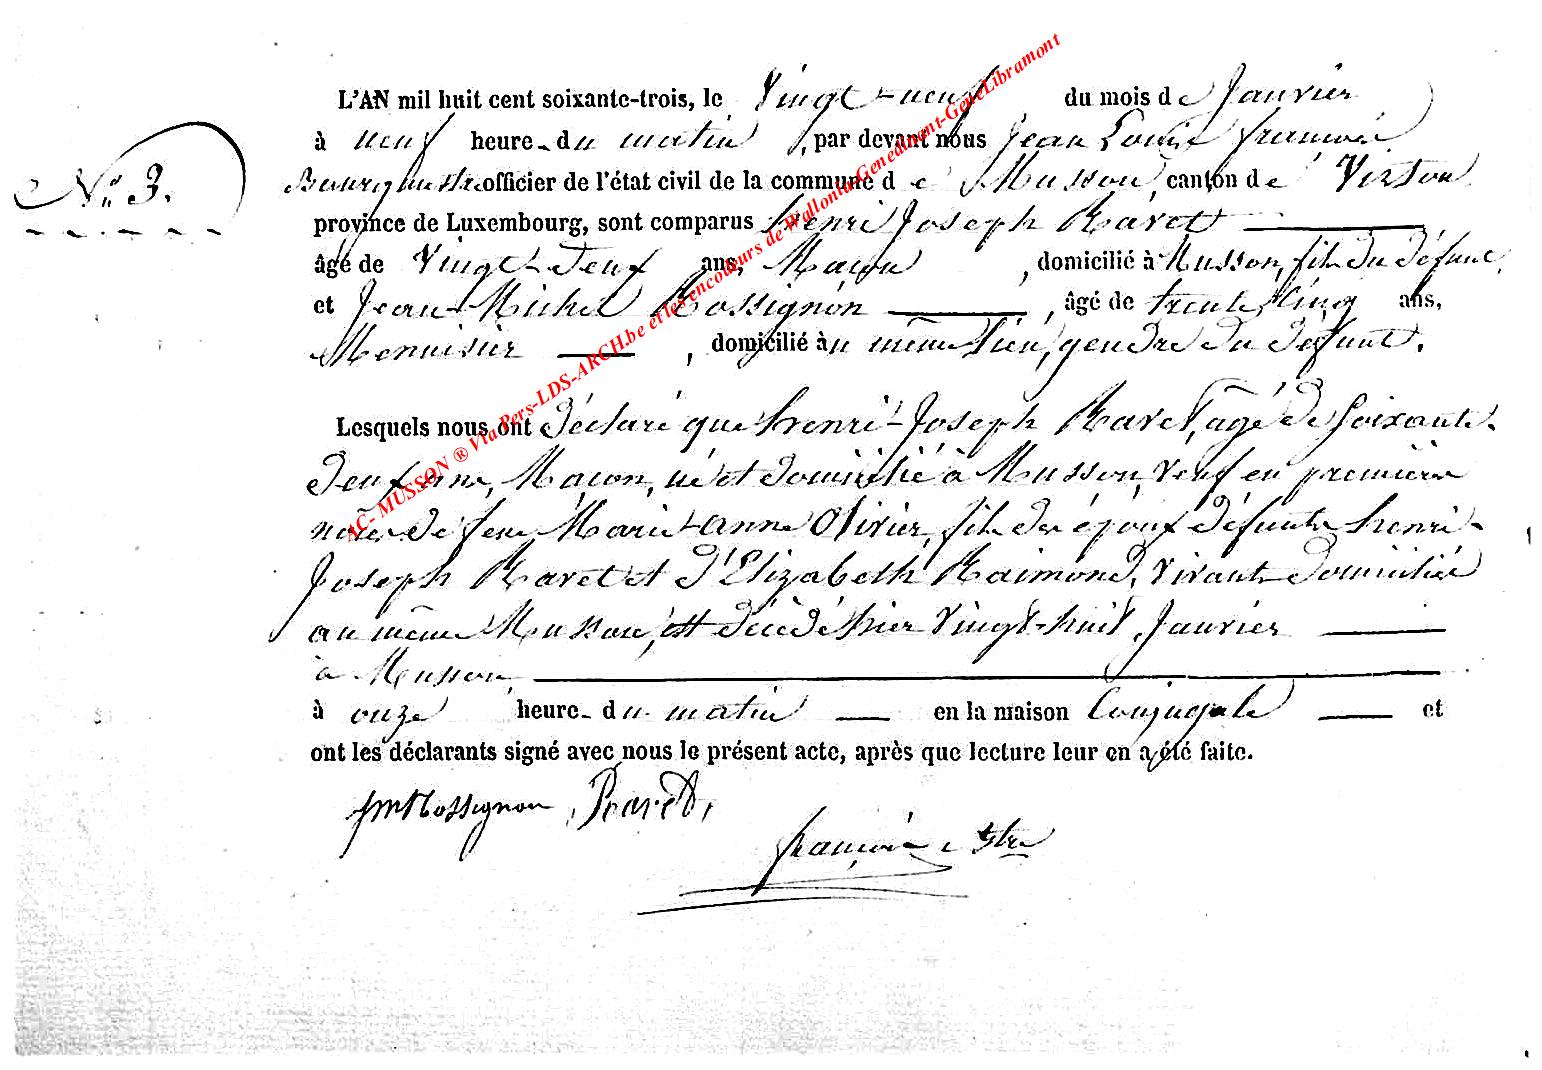 L'AN mil huit cent soixante-trois, le Vingt-neuf du mois de Janvier
à neuf heure-du matin, par devant nous Jean Louis françois
N° 3.
Bourgmestre officier de l'état civil de la commune de Musson, canton de Virton
province de Luxembourg, sont comparus henri Joseph Ravet
âgé de Vingt-Deux ans, Maçon, domicilié à Musson, fils du défunt,
et Jean-Michel Rossignon, âgé de trente cinq ans,
Menuisier, domicilié au même lieu, gendre du defunt.
Lesquels nous ont déclaré que henri-Joseph Ravet, agé de Soixante-
deux ans, Maçon, né et domicilié à Musson, veuf en premières
noces de feue Marie-anne Olivier, fils des époux défunts henri-
Joseph Ravet et d'Elizabeth Raimond, vivants domiciliés
au même Musson, est décédé hier Vingt-huit Janvier
à Musson,
à onze heure-du matin en la maison Conjugale et
ont les déclarants signé avec nous le présent acte, après que lecture leur en a été faite.
jmRossignon, Ravet,
françois
AC- MUSSON ® Via Pers-LDS-ARCH.be et les encodeurs de Wallonia-Genedinant-GeneLibramont